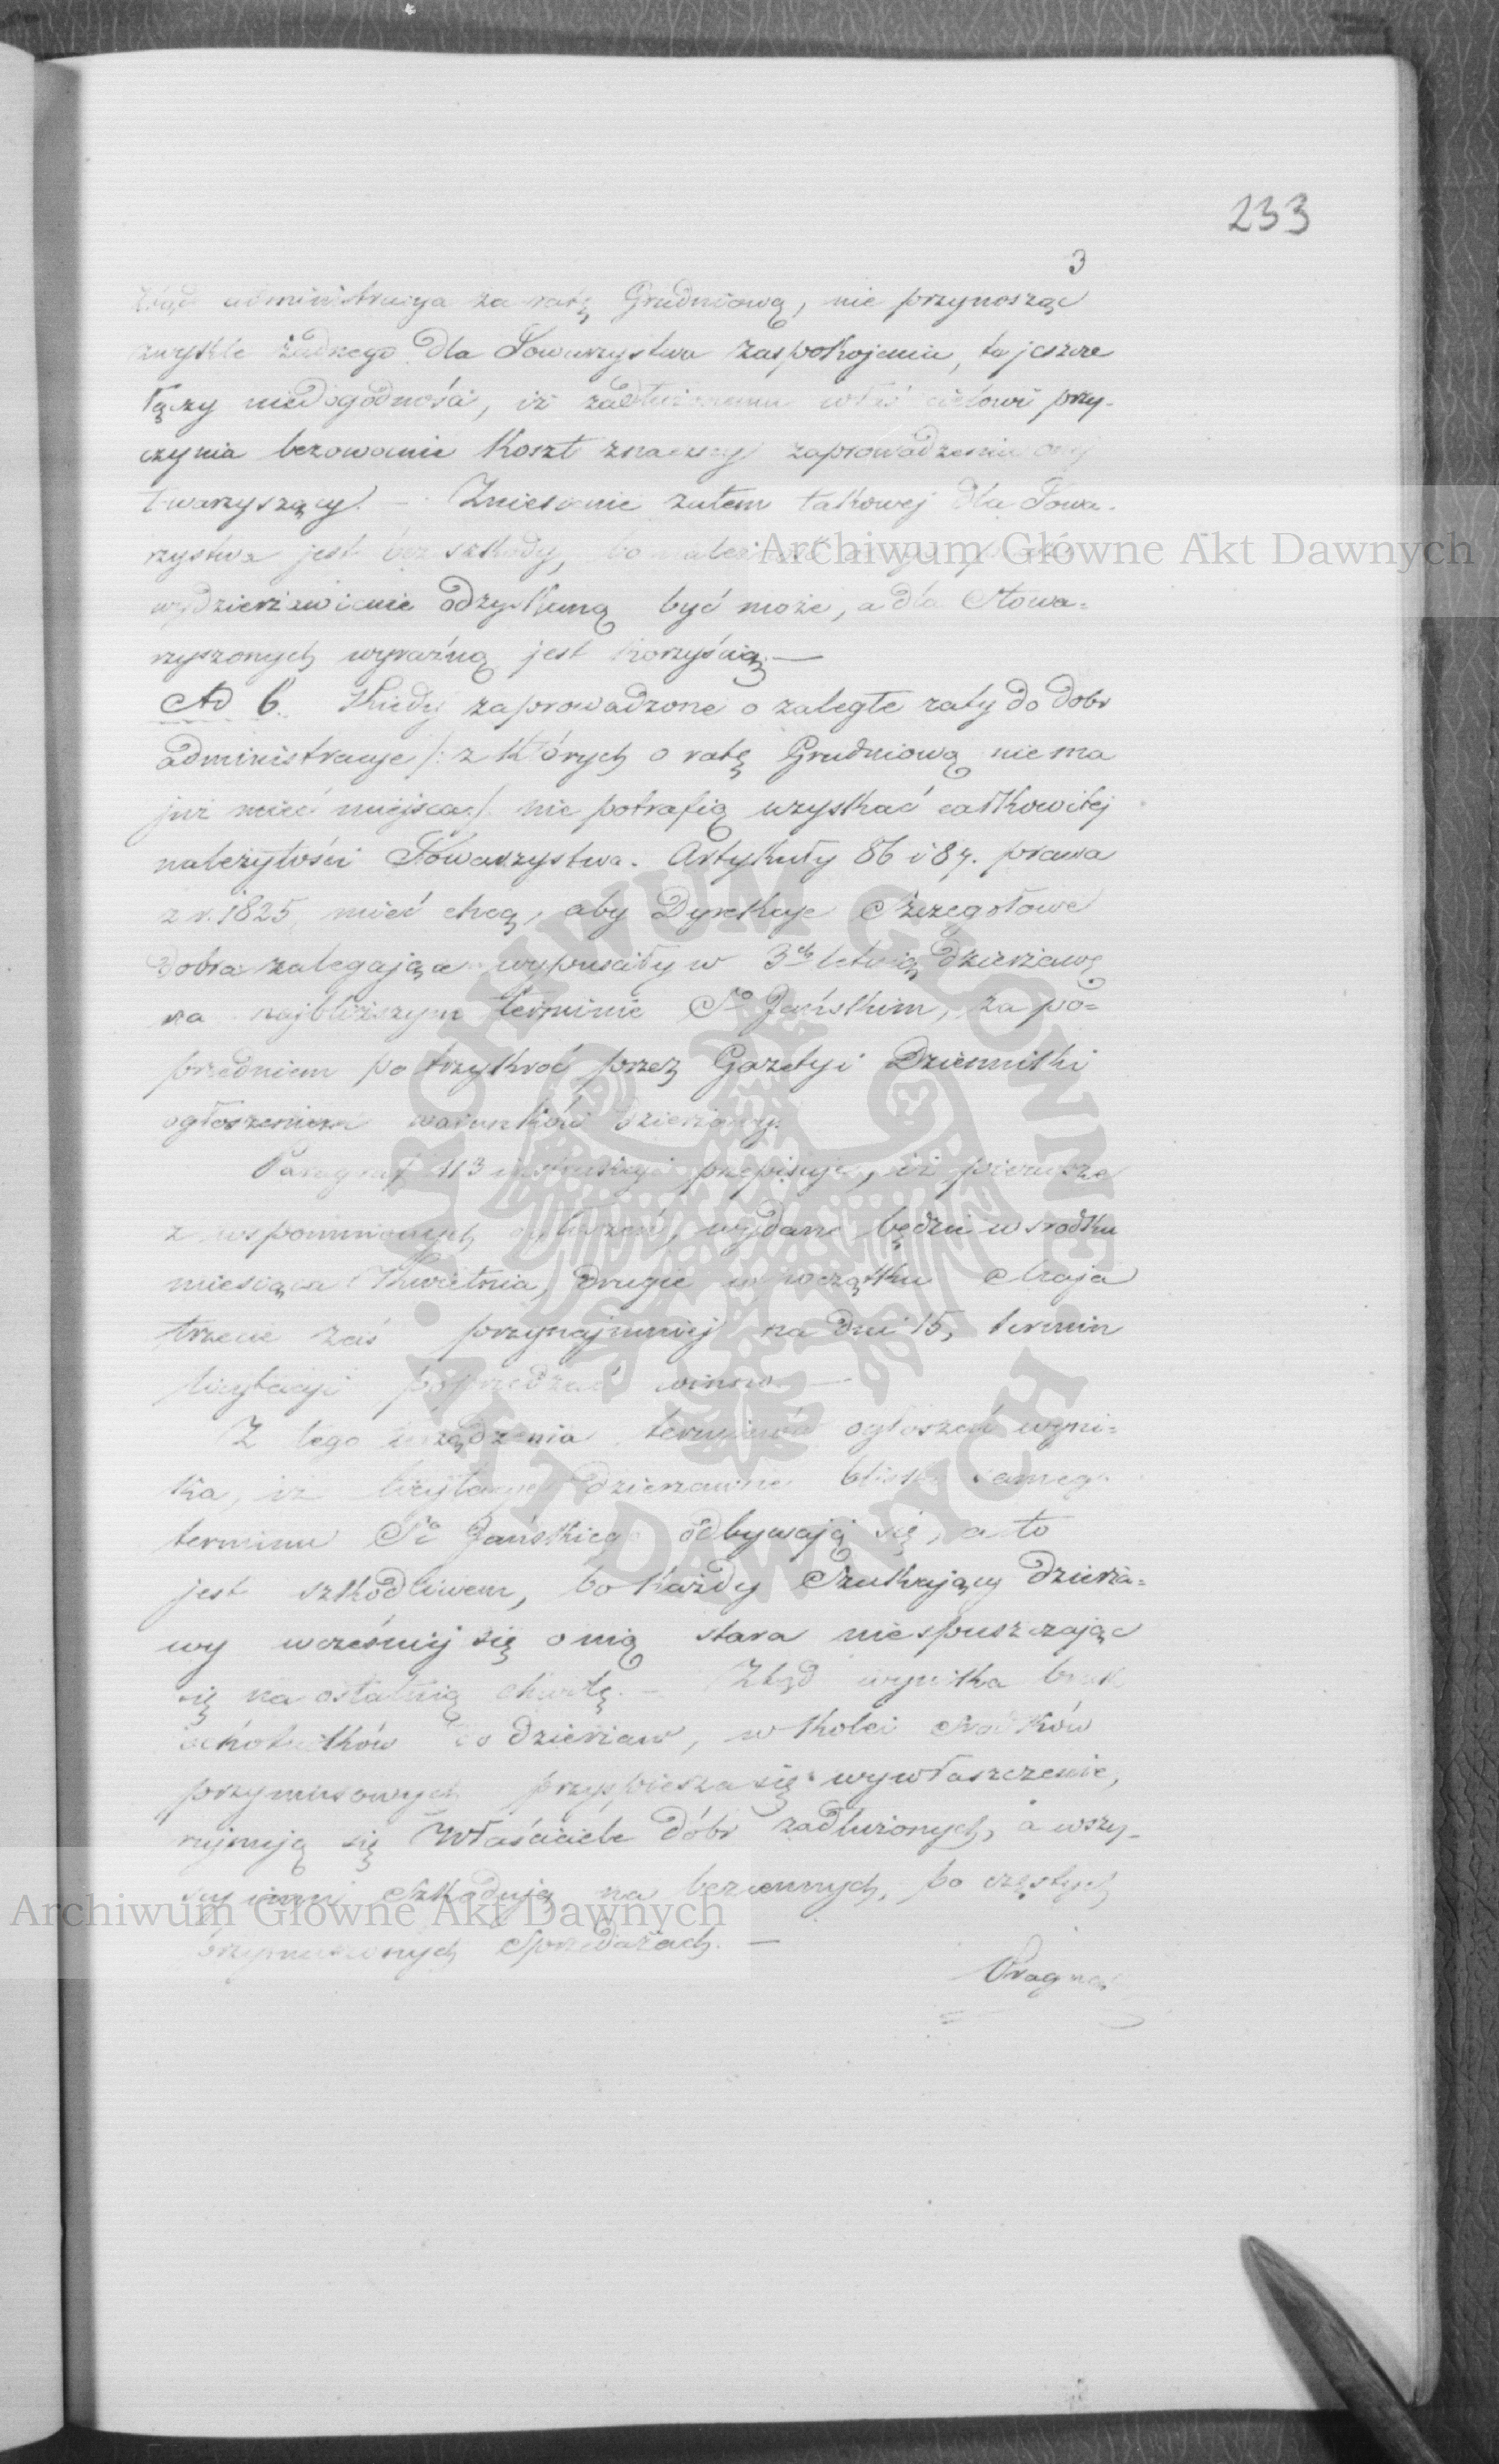 233
3
ztąd administracya za ratę Grudniową, nie przynosząc
zwykle żadnego dla Towarzystwa zaspokojenia, ta jeszcze
łączy niedogodności, iż zadłużonemu właścicielowi przy-
czynia bezowocnie koszt znaczny zaprowadzeniu
towarzyszący. — Zniesienie zatem takowej dla Towa-
rzystwa jest bez szkody, bo należność
wydzierżawienie odzyskaną być może, a dla Stowa=
rzyszonych wyraźną jest korzyścią. —
Ad 6. Kiedy zaprowadzone o zaległe raty do dobr
administracye /: z których o ratę Grudniową nie ma
już mieć miejsca :/ nie potrafią uzyskać całkowitej
należytości Towarzystwa. Artykuły 86 i 87. prawa
z r. 1825 mieć chcą, aby Dyrekcye Szczegółowe
dobra zalegające wypuściły w 3ch letnią dzierżawę
na najbliższym terminie So Jańskim, za po=
przedniem po trzykroć przez Gazety i Dzienniki
ogłoszeniem warunków dzierżawy.
Paragraf 113 instrukcyi przepisuje, iż pierwsze
z wspomnionych ogłoszeń, wydane będzie w środku
miesiąca Kwietnia, drugie w początku Maja
trzecie zaś przynajmniej na dni 15, termin
licytacyi poprzedzać winno. —
Z tego urządzenia terminów ogłoszeń wyni=
ka, iż licytacye dzierżawne blisko samego
terminu So Jańskiego odbywają się, a to
jest szkodliwem, bo każdy Szukający dzierża=
wy wcześniej się o nią stara niespuszczając
się na ostatnią chwilę. — Ztąd wynika brak
ochotników do dzierżaw, w kolei środków
przymusowych przyspiesza się wywłaszczenie,
rujnują się Właściciele dóbr zadłużonych, a wszy-
scy inni szkodują na bezcennych, po częstych
przymuszonych Sprzedażach. —
Pragnąc
Archiwum Główne Akt Dawnych
Archiwum Główne Akt Dawnych
ARCHIWUM GŁÓWNE • AKT DAWNYCH •